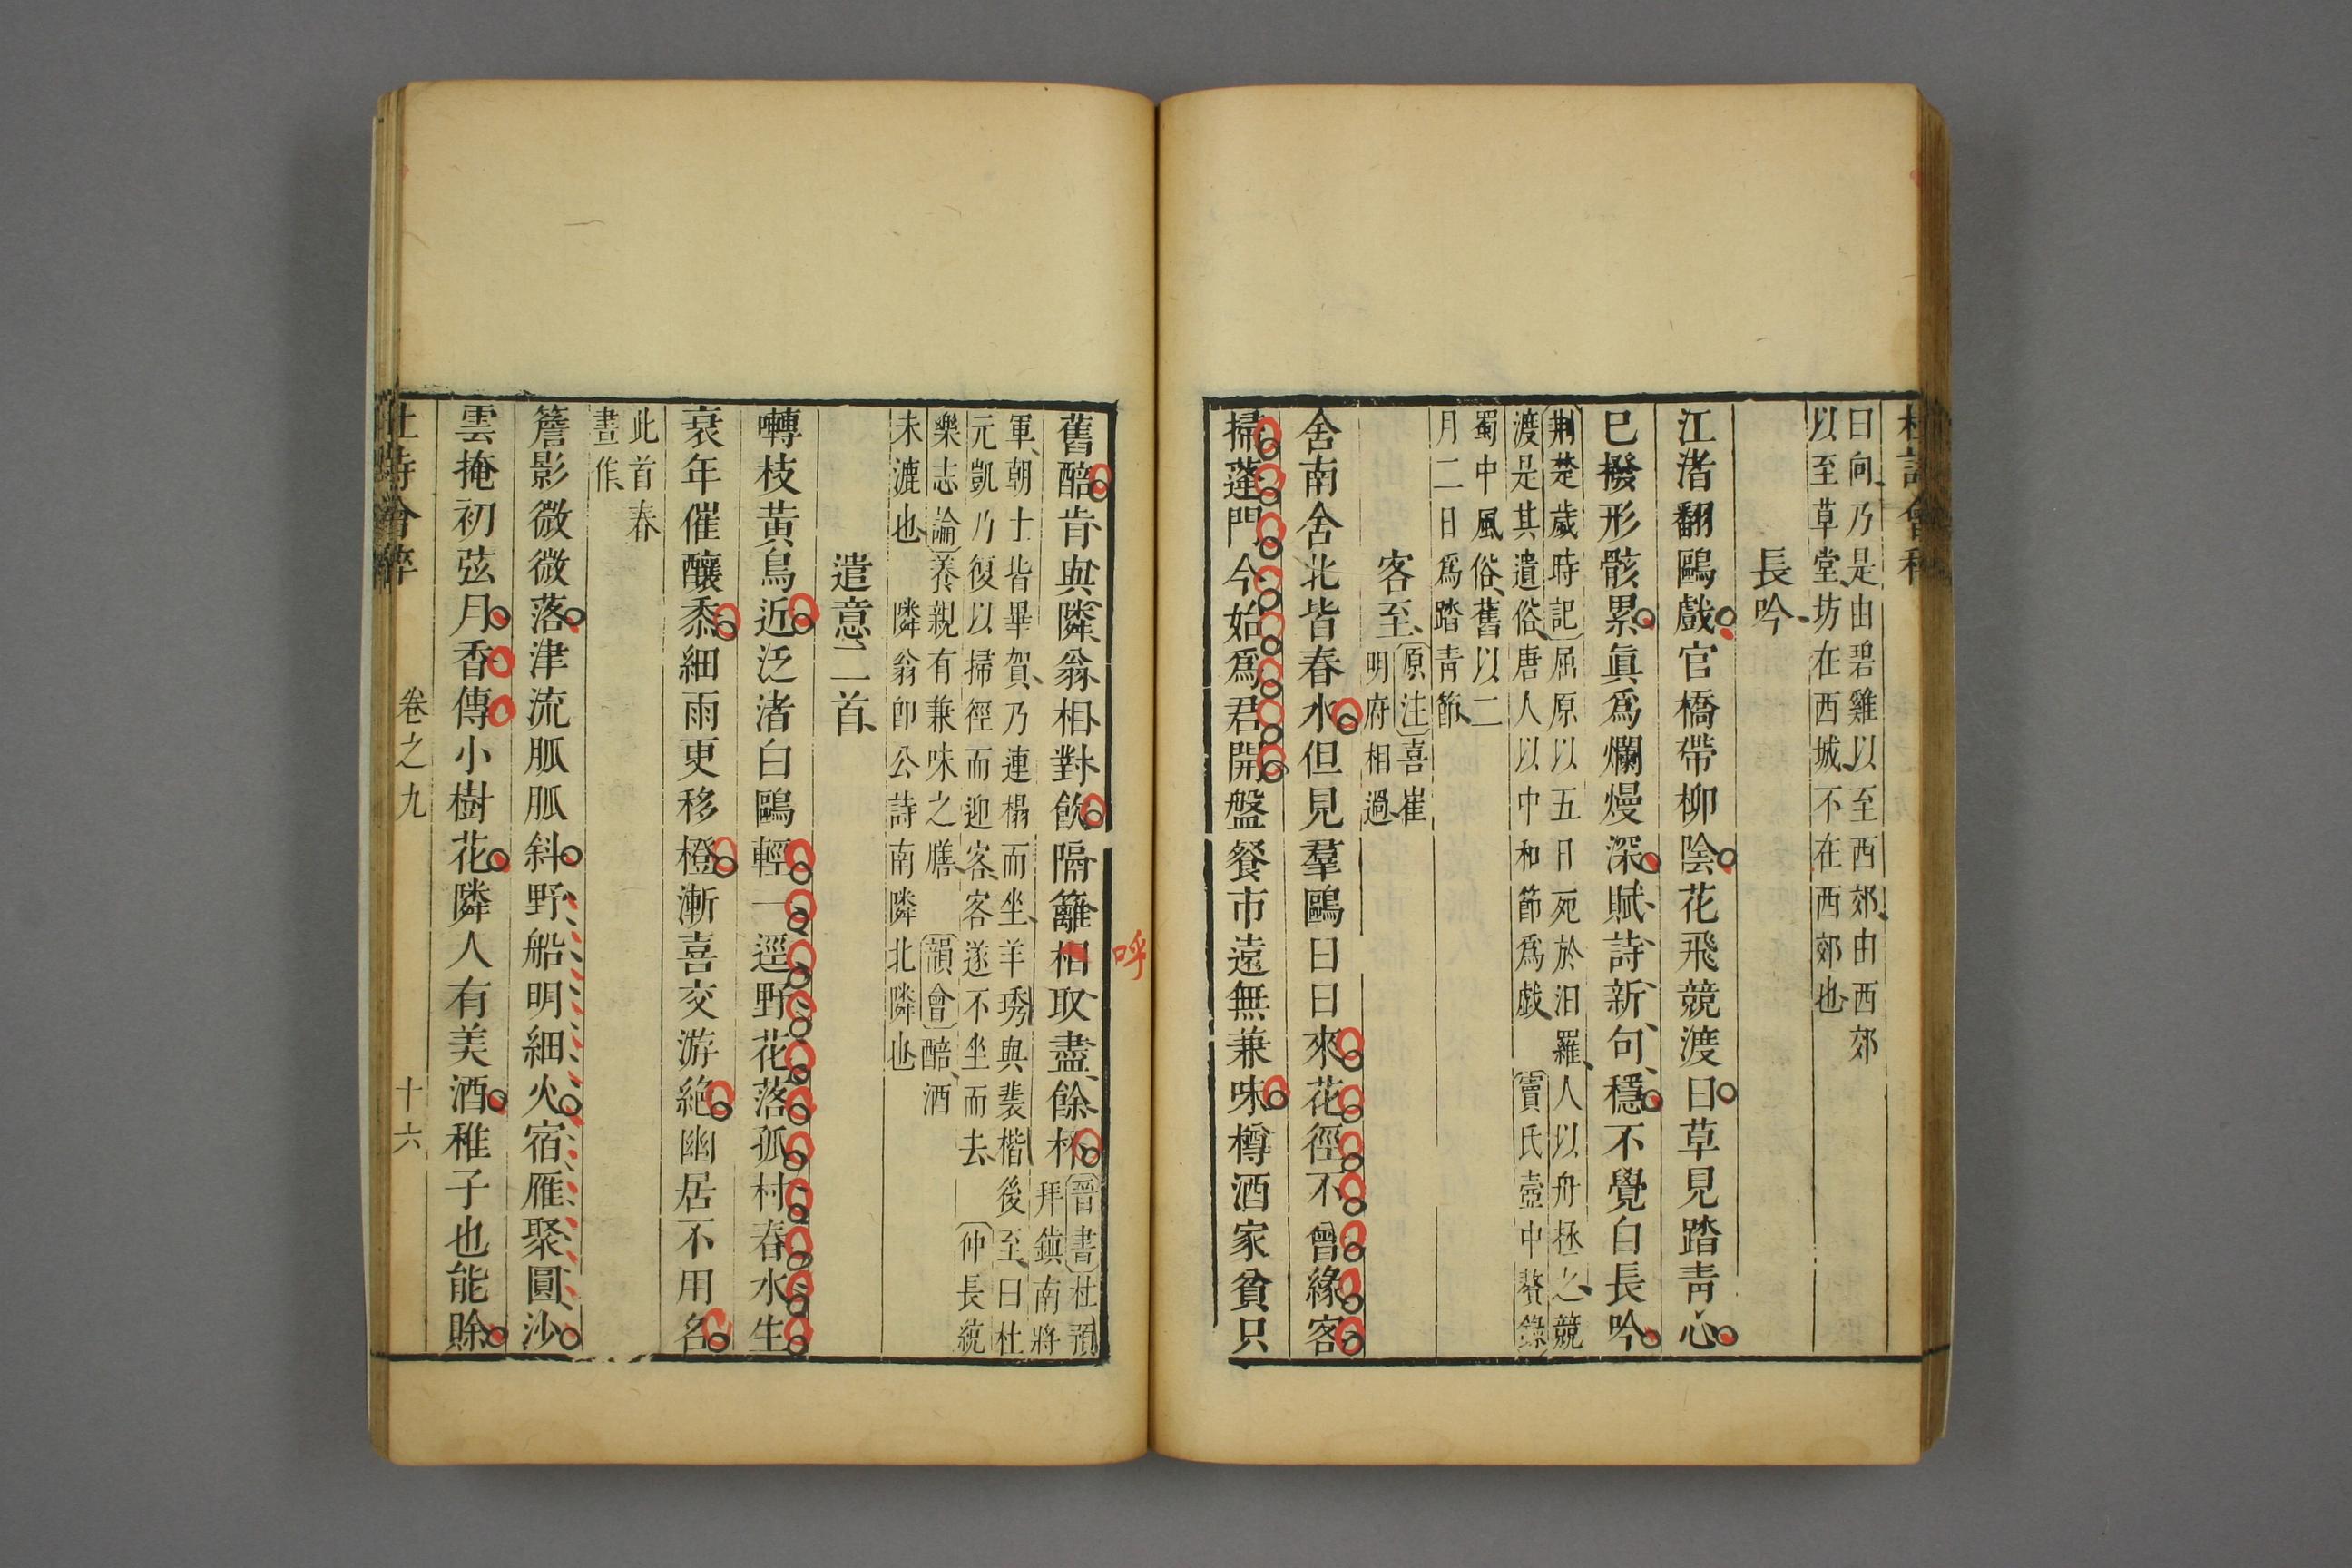 曰向乃是由碧雞以至西郊由西郊
以至草堂坊在西城不在西郊也
長吟
江渚翻鷗戲官橋帶柳陰花飛競渡日草見踏青心
已撥形骸累真爲爛熳深賦詩新句穩不覺白長吟
荆楚歲時記屈原以五日死於汨羅人以舟拯之競
渡是其遺俗唐人以中和節爲戱 賈氏壺中贅錄
蜀中風俗舊以二
月二日爲踏青節
客至
原注喜崔
明府相過
舍南舍北皆春水但見羣鷗日日來花徑不曾緣客
掃蓬門今始爲君開盤餐市遠無兼味樽酒家貧只
舊醅肯與隣翁相對飲隔籬相取盡餘杯
呼
晉書杜預
拜鎮南將
軍朝士皆畢賀乃連榻而坐羊琇與裴楷後至曰杜
元凱乃復以掃徑而迎客客遂不坐而去 仲長統
樂志論養親有兼味之膳 韻會醅酒
未漉也 隣翁卽公詩南隣北隣也
遣意二首
囀枝黃鳥近泛渚白鷗輕一逕野花落孤村春水生
衰年催釀黍細雨更移橙漸喜交游絶幽居不用名
此首春
晝作
簷影微微落津流脈脈斜野船明細火宿雁聚圓沙
雲掩初弦月香傳小樹花隣人有美酒稚子也能賖
杜詩會稡
卷之九
十六